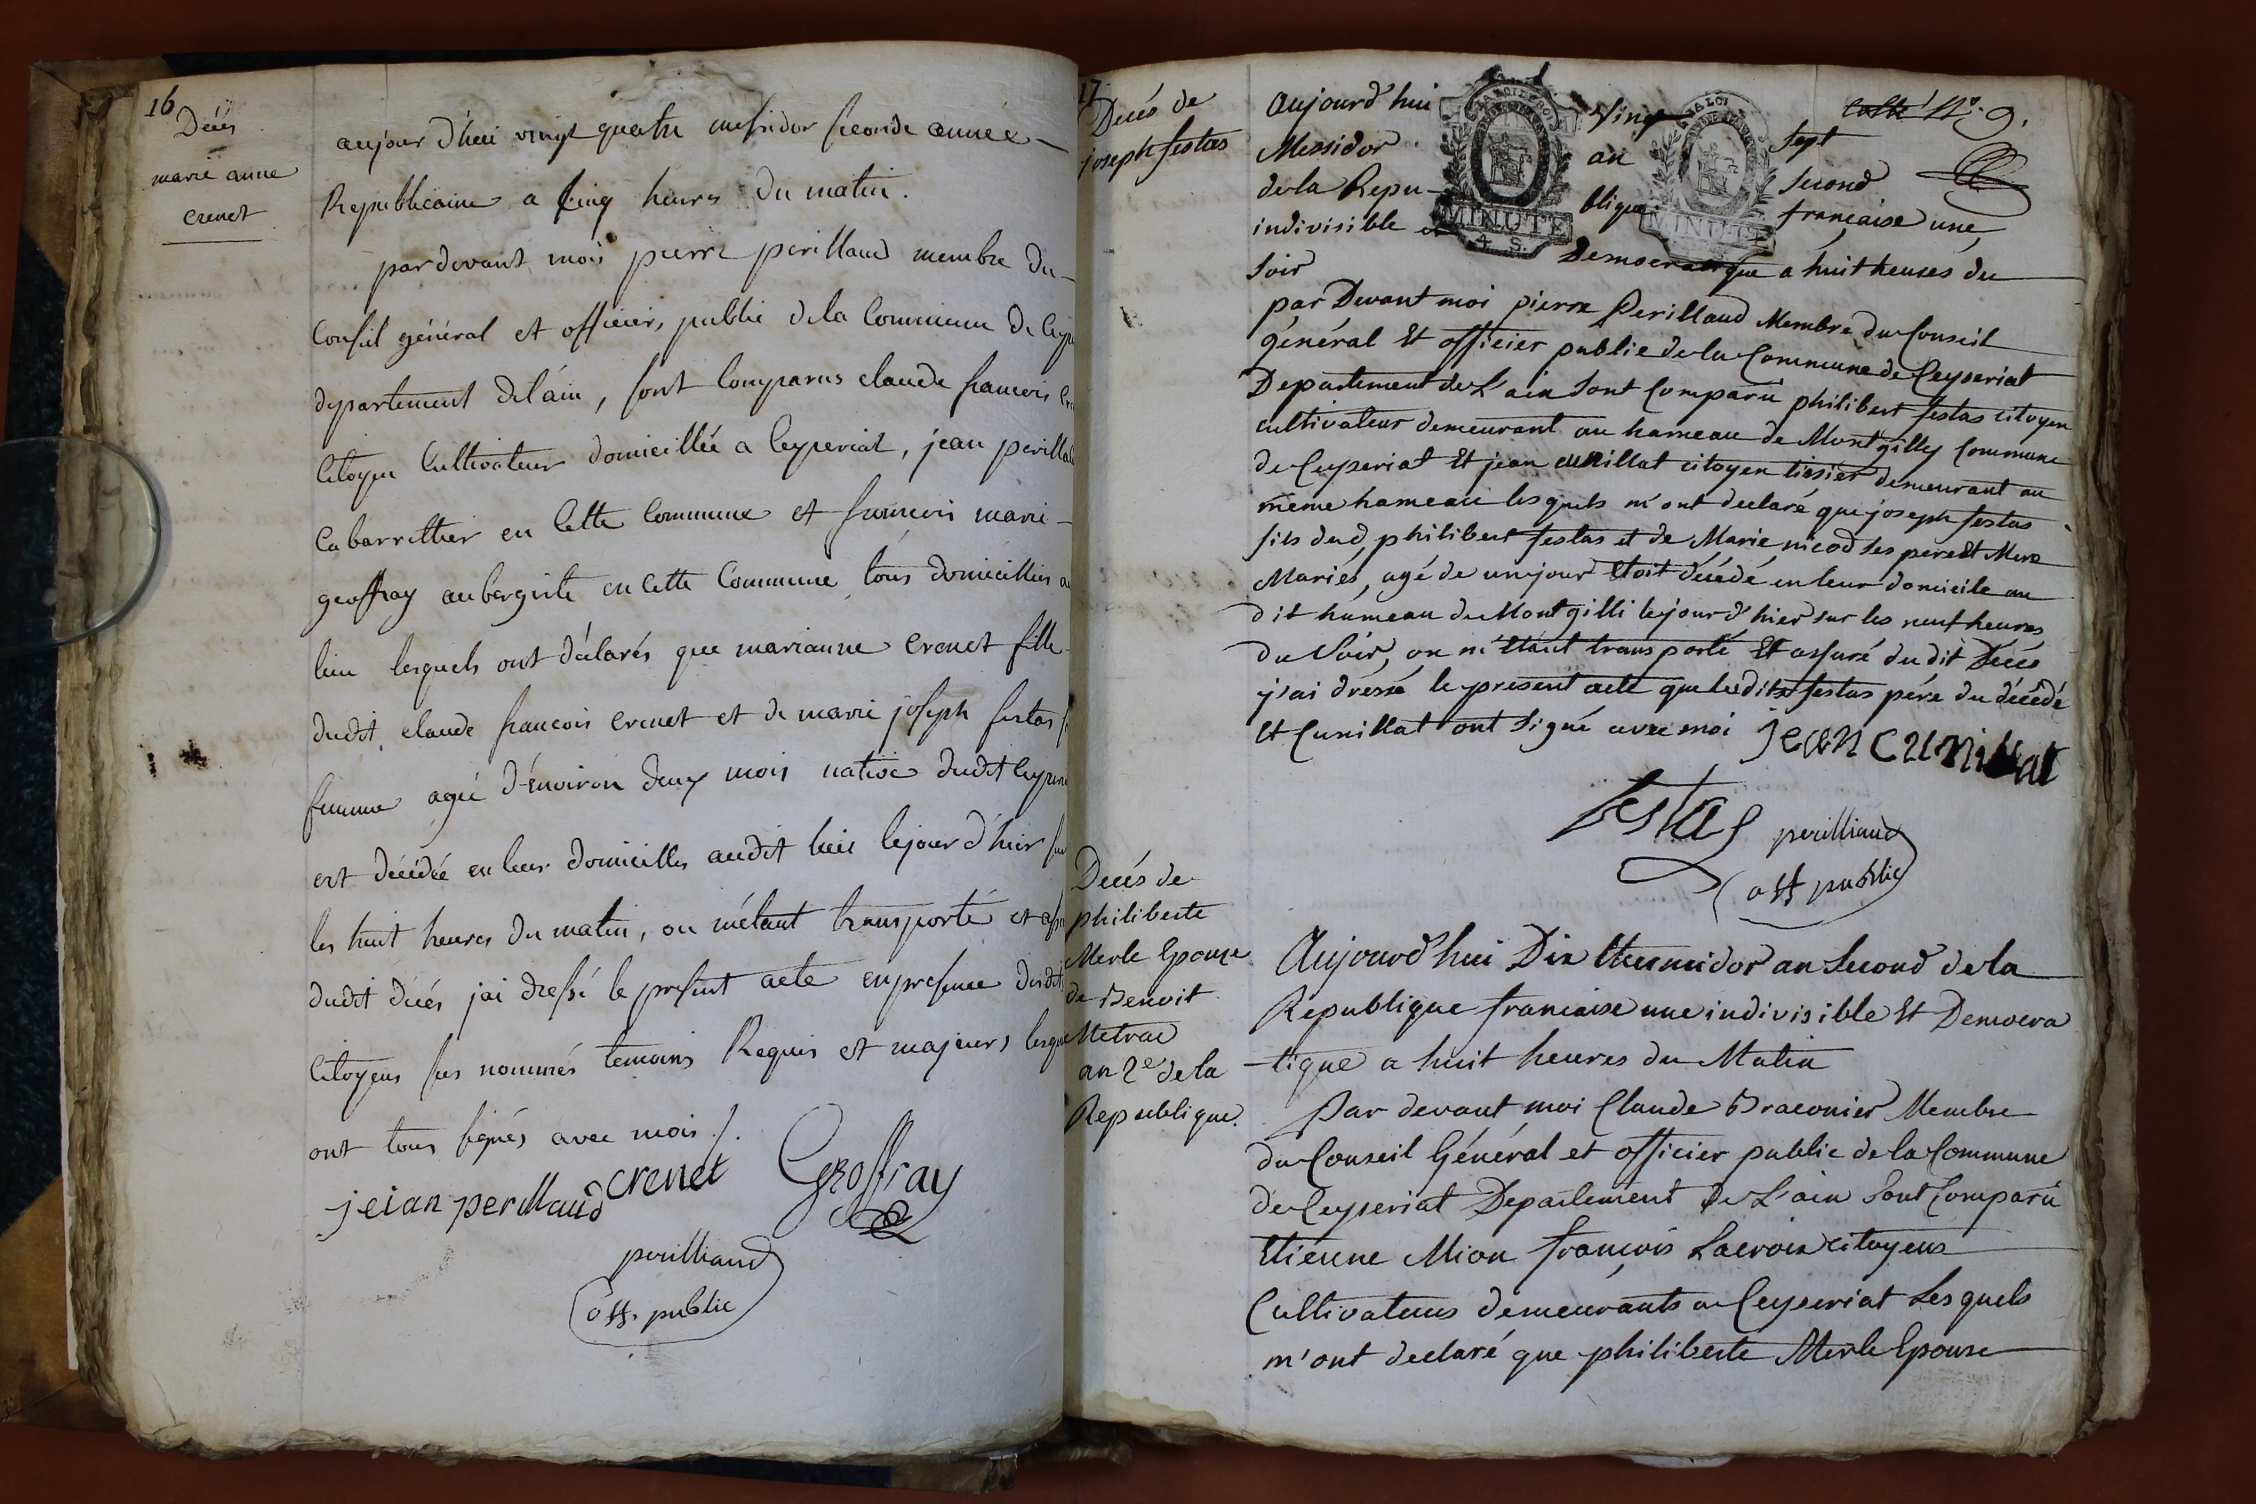 16
Décés
marie anne
crenet
aujour d'huy vingt quatre messidor seconde année
Republicaine a cinq heures du matin.
par devant mois pierre perillaud membre du
Conseil général et officier public de la Commune de Ceyse
departement del'ain, sont comparus claude francois
Citoyen Cultivateur domicillée a Ceyseriat, jean perillau
Cabarrettier en Cette Commune et francois marie
geoffray aubergiste en Cette Commune, tous domicilliés a
lieu lesquels ont déclarés que marianne crenet fille
dudit claude francois crenet et de marie joseph festas
femme agée d'énviron deux mois native dudit Ceyse
est décédée en leur domicilles audit lieu lejour d'hier
les huit heures du matin, ou métant transporté et
dudit décés jai dressé le present acte enpresence desdit
Citoyens sus nommés temoins Requis et majeurs lesque
ont tous signés avec mois /.
jeian perillaud crenet Geoffray
perilliaud
off. public
17
Decés de
joseph festas
Cotté No. 9.
Aujourd'hui Vingt Sept
Messidor an Second
de la Repu- blique française une
indivisible et Democratique a huit heures du
Soir
par Devant moi pierre Perillaud Membre du Conseil
général Et officier public de la Commune de Ceyseriat
Departement de L'ain Sont Comparu philibert festas citoyen
cultivateur demeurant au hameau de Montgilly Commune
de Ceyseriat Et jean cunillat citoyen tissier demeurant au
même hameau lesquels m'ont declaré que joseph festas
fils dud, philibert festas et de Marie nicod ses pere Et Mere
Mariés, agé de un jour Etoit décédé en leur domicile au
dit hameau de Montgilli le jour d'hier sur les neuf heures
du Soir, ou m'étant transporté Et assuré du dit Décés
j'ai dréssé le present acte que lesdits festas pére du décédé
Et Cunillat ont Signé avec moi jean cunillat
festas perilliaud
off public
Decés de
philiberte
Merle Epouse
de Benoit
Metrae
an 2e de la
Republique.
Aujourd'hui Dix thermidor an Second de la
Republique francaise une indivisible Et Democra
-tique a huit heures du Matin
Par devant moi Claude Braconier Membre
du Conseil Général et officier public de la Commune
de Ceyseriat Departement de L'ain Sont Comparu
Etienne Mion françois Lacroix citoyens
Cultivateurs demeurants a Ceyseriat Lesquels
m'ont declaré que philiberte Merle Epouse